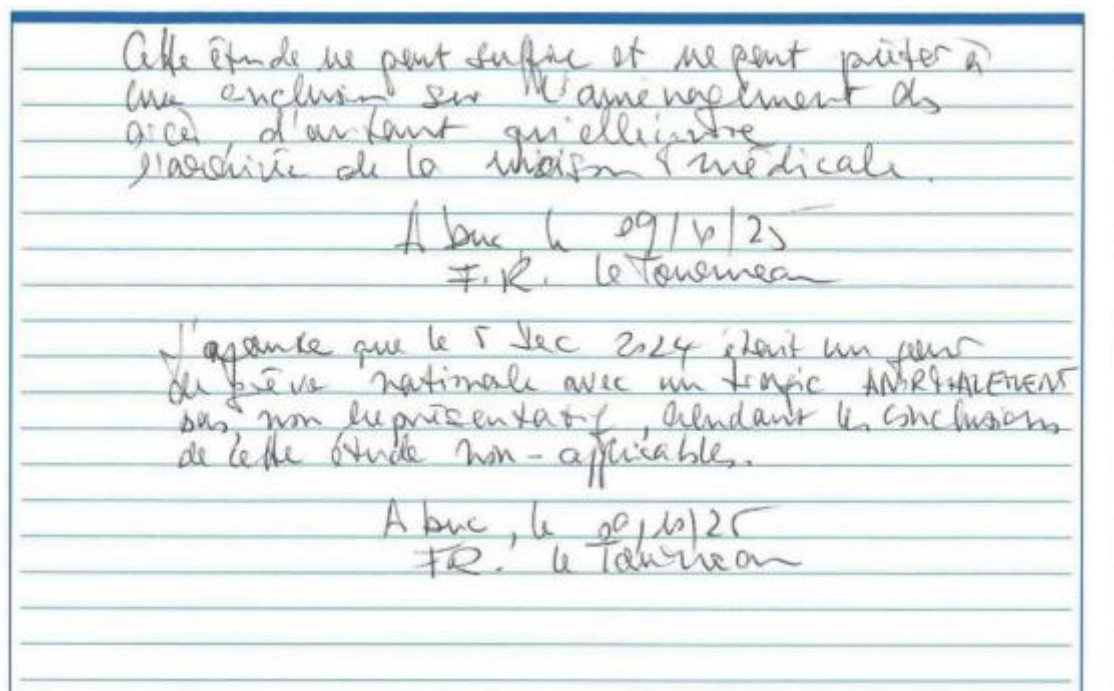 Cette étude ne peut suffire et ne peut prêter à
une conclusion sur l'aménagement des
accès d'autant qu'elle
l'arrivée de la maison médicale.
A buc, le 09/10/25
F.R. le Tourneau
J'ajoute que le 5 Dec 2024 était un jour
de grève nationale avec un trafic ANORMALEMENT
bas non représentatif, rendant les conclusions
de cette étude non-applicables.
A buc, le 09/10/25
FR. le Tourneau